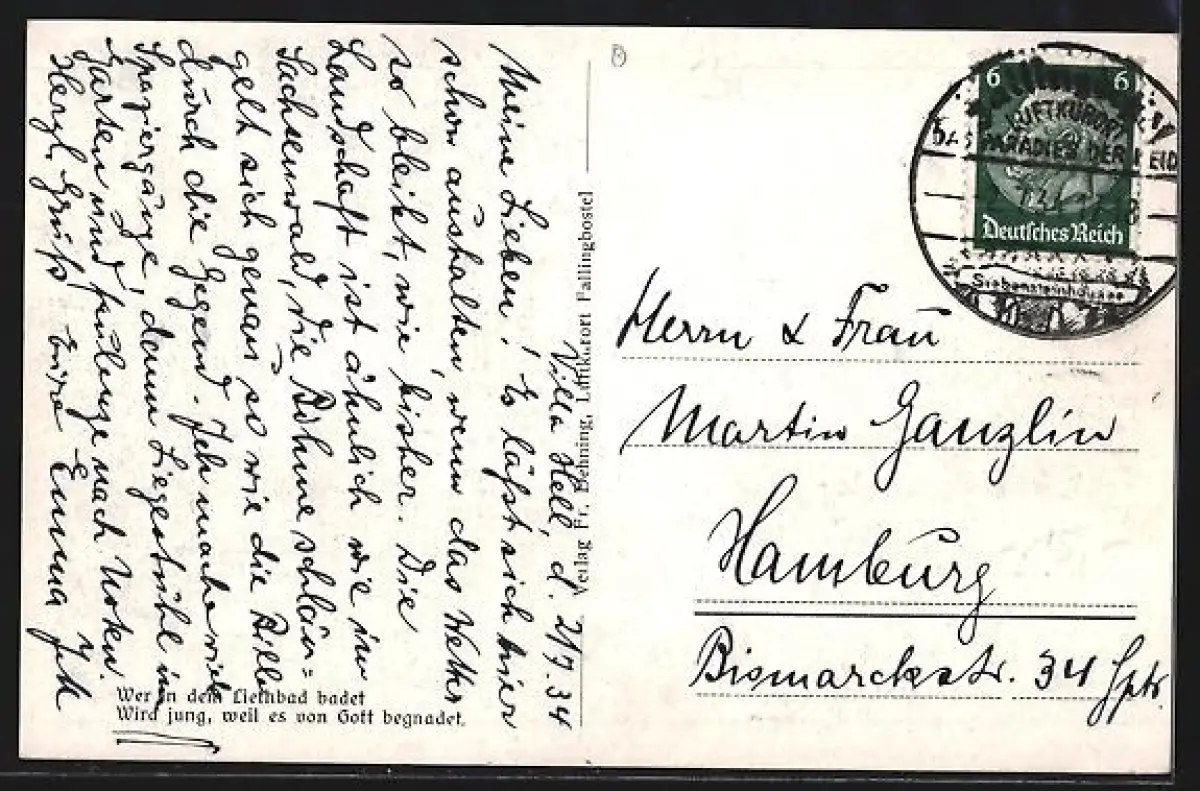 Villa Hell, d. 21/7.34
Meine Lieben! Es läßt sich hier
schon aushalten, wenn das Wetter
so bleibt, wie bisher. Die
Landschaft ist ähnlich wie im
Sachsenwald, die Böhme schlän=
gelt sich genau so wie die Bille
durch die Gegend. Ich mache viele
Spaziergänge, dann Liegestühl im
Garten und
Herzl. Grüß Eüre Emma
Wer in dem Liethbad badet
Wird jung, weil es von Gott begnadet.
Verlag Fr. Behning, Luftkurort Fallingbostel
6 6
Deutsches Reich
LUFTKURORT
PARADIES DER HEID
Siebensteinhäuser
Herrn & Fraü
Martin Ganzlin
Hamburg
Bismarckstr. 34 Hptr.